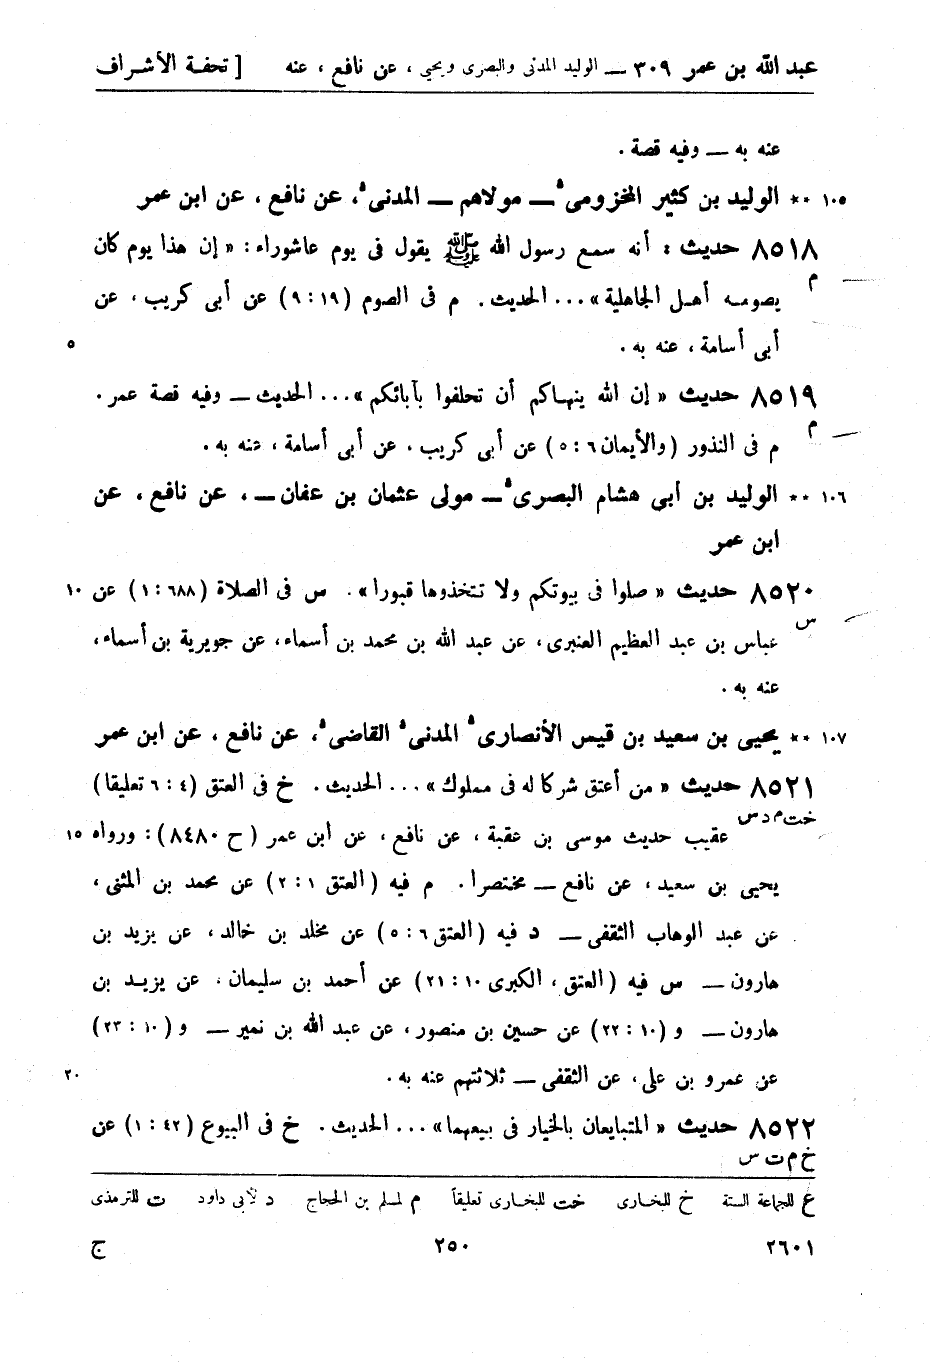 عبد الله بن عمر ٣٠٩ — الوليد المدنى والبصرى ويحيى ، عن نافع ، عنه [ تحفة الأشراف
عنه به — وفيه قصة .
١٠٥ ** الوليد بن كثير المخزومى ـ مولاهم ـ المدنى ، عن نافع ، عن ابن عمر
٨٥١٨ حديث : أنه سمع رسول الله ﷺ يقول فى يوم عاشوراء : « إن هذا يوم كان
م
يصومـه أهـل الجاهلية » ... الحديث . م فى الصوم (١٩ : ٩) عن أبى كريب ، عن
أبى أسامة ، عنه به . ٥
٨٥١٩ حديث « إن الله ينهاكم أن تحلفوا بآبائكم » ... الحديث — وفيه قصة عمر .
م
م فى النذور (والأيمان ٦ : ٥) عن أبى كريب . عن أبى أسامة ، عنه به .
١٠٦ ** الوليد بن أبى هشام البصرى ـ مولى عثمان بن عفان ـ ، عن نافع ، عن
ابن عمر
٨٥٢٠ حديث « صلوا فى بيوتكم ولا تتخذوها قبورا » . س فى الصلاة (٦٨٨ : ١) عن ١٠
س
عباس بن عبد العظيم العنبرى ، عن عبد الله بن محمد بن أسماء ، عن جويرية بن أسماء ،
عنه به .
١٠٧ ** يحيى بن سعيد بن قيس الأنصارى المدنى القاضى ، عن نافع ، عن ابن عمر
٨٥٢١ حديث « من أعتق شركا له فى مملوك » ... الحديث . خ فى العتق (٤ : ٦ تعليقا)
خت م د س
عقيب حديث موسى بن عقبة ، عن نافع ، عن ابن عمر (ح ٨٤٨٠) : ورواه ١٥
يحيى بن سعيد ، عن نافع — مختصرا . م فيه (العتق ١ : ٢) عن محمد بن المثنى ،
عن عبد الوهاب الثقفى — د فيه (العتق ٦ : ٥) عن مخلد بن خالد ، عن يزيد بن
هارون — س فيه (العتق ، الكبرى ١٠ : ٢١) عن أحمد بن سليمان . عن يزيـد بن
هارون — و (١٠ : ٢٢) عن حسين بن منصور ، عن عبد الله بن نمير — و (١٠ : ٢٣)
عن عمرو بن على ، عن الثقفى — ثلاثتهم عنه به . ٢٠
٨٥٢٢ حديث « المتبايعان بالخيار فى بيعهما » ... الحديث . خ فى البيوع (٤٢ : ١) عن
خ م ت س
ع للجماعة الستة خ للبخارى خت للبخارى تعليقاً م لمسلم بن الحجاج د لأبى داود ت للترمذى
٢٦٠١ ٢٥٠ ج